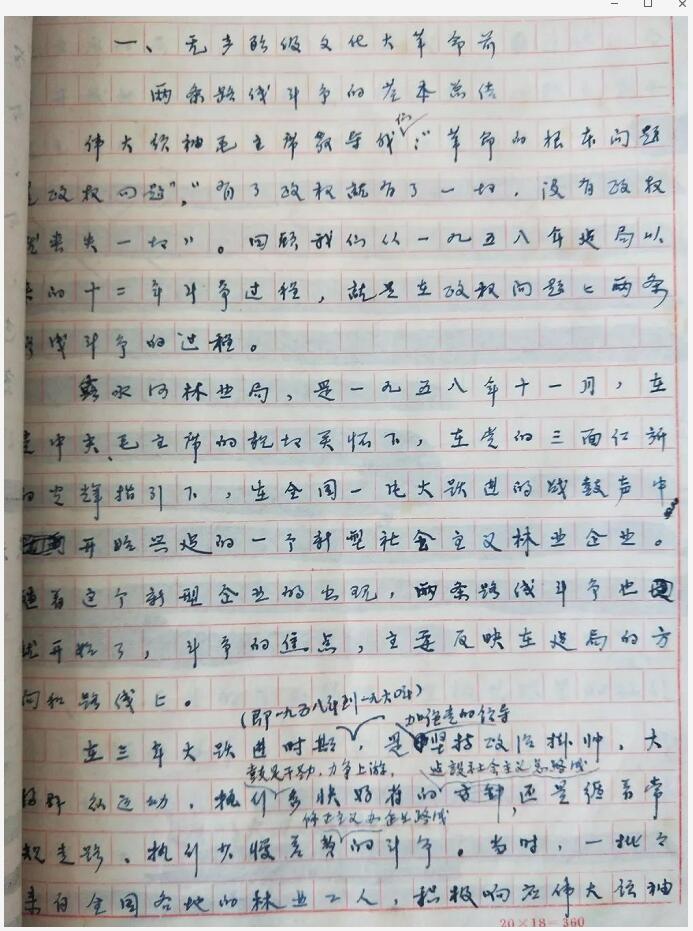 一、无产阶级文化大革命前
两条路线斗争的基本总结
伟大领袖毛主席教导我们：“革命的根本问题
是政权问题”，“有了政权就有了一切，没有政权
就丧失一切”。回顾我们从一九五八年建局以
来的十二年斗争过程，就是在政权问题上两条
路线斗争的过程。
露水河林业局，是一九五八年十一月，在
党中央、毛主席的亲切关怀下，在党的三面红旗
的光辉指引下，在全国一片大跃进的战鼓声中
开始兴建的一个新型社会主义林业企业。
随着这个新型企业的出现，两条路线斗争也
就开始了，斗争的焦点，主要反映在建局的方
向和路线上。
(即一九五八年到一九六〇年) 加强党的领导
在三年大跃进时期，是坚持政治挂帅、大
鼓足干劲，力争上游， 建設社会主义总路线
搞群众运动、执行多快好省的方针，还是循着常
修正主义办企业路线
规走路、执行少慢差费的斗争。当时，一批
来自全国各地的林业工人，积极响应伟大领袖
20×18=360